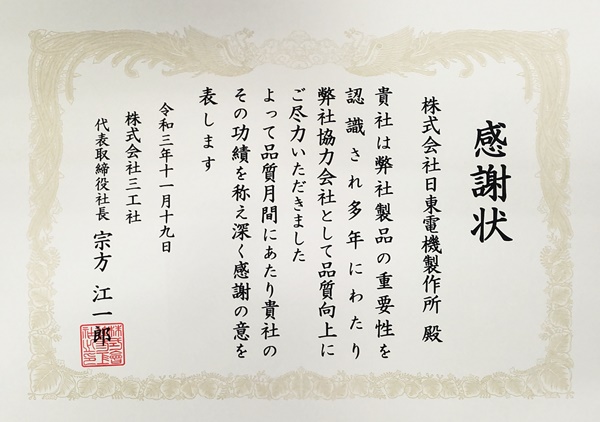 感謝状
株式会社日東電機製作所 殿
貴社は弊社製品の重要性を
認識され多年にわたり
弊社協力会社として品質向上に
ご尽力いただきました
よって品質月間にあたり貴社の
その功績を称え深く感謝の意を
表します
令和三年十一月十九日
株式会社三工社
代表取締役社長 宗方 江一郎